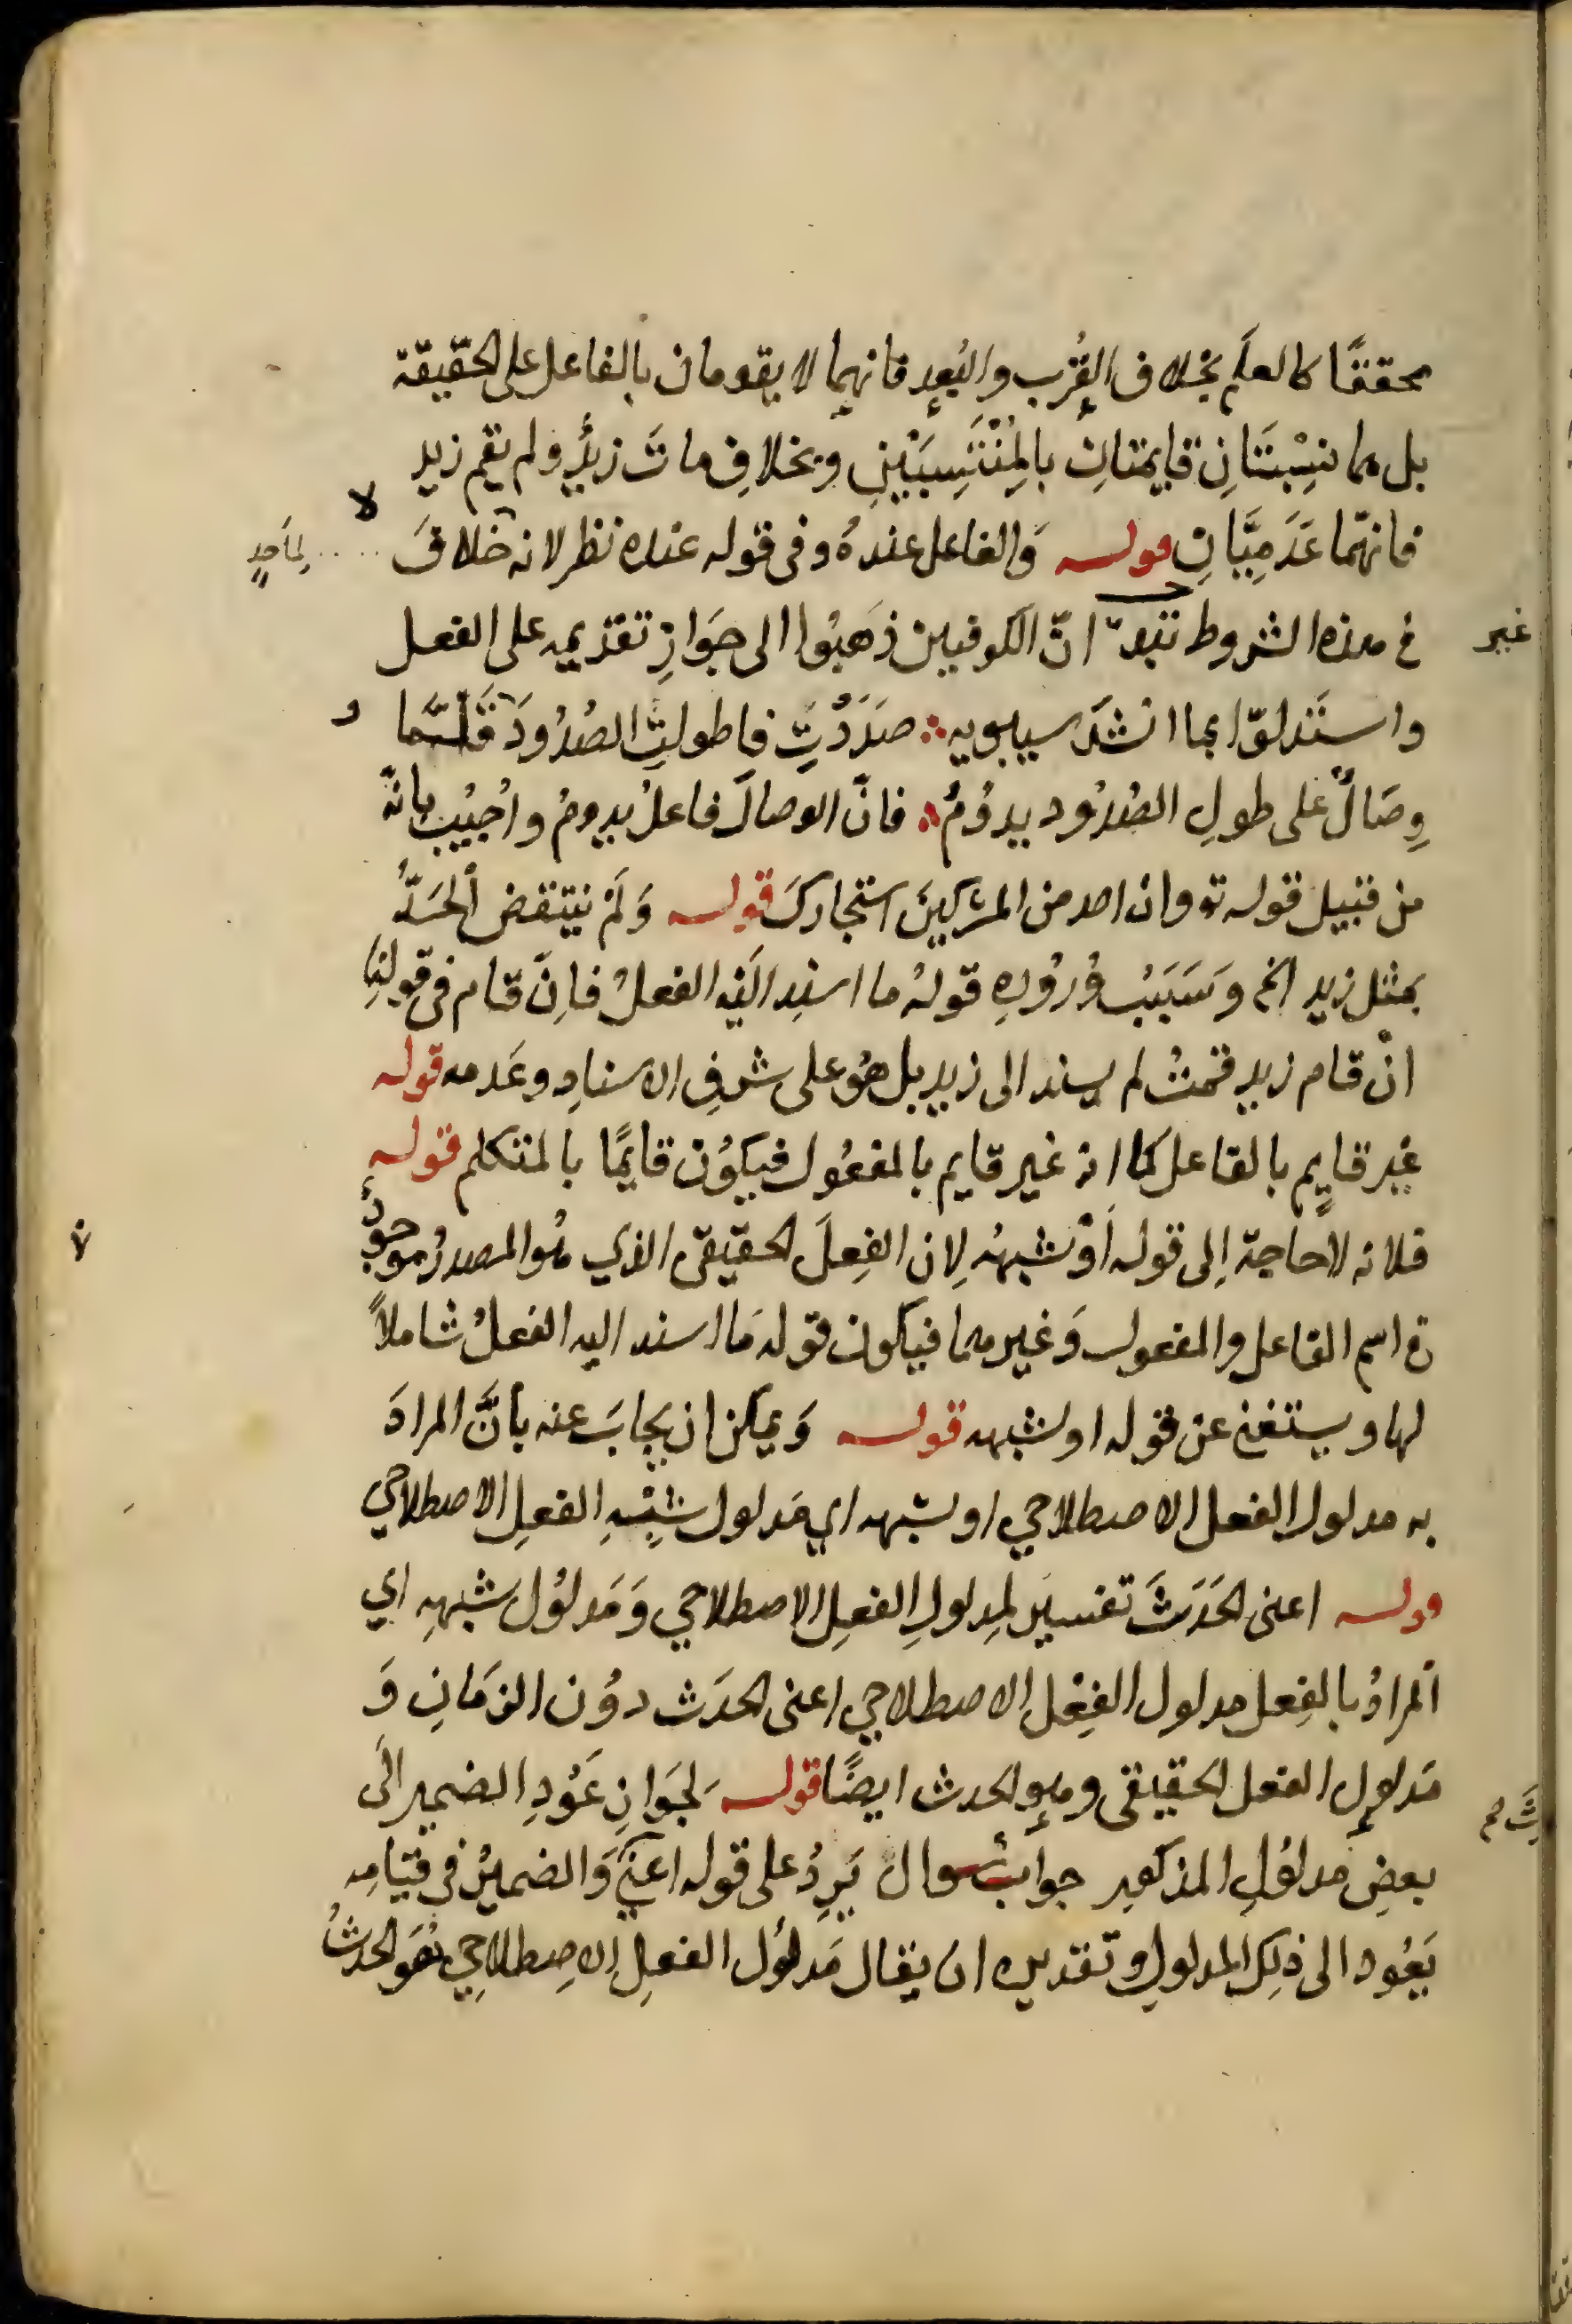 محققًا كالعلم بخلاف القُرب والبُعد فانهما لا يقومان بالفاعل على الحقيقة
بل هما نِسْبَتَانِ قايمتانِ بالمُنْتَسِبَيْنِ وبخلافِ ماتَ زيدٌ ولم يقم زيد
فانهما عَدَمِيَّانِ قوله وَالفاعل عندهُ وفى قوله عنده نظر لانه لا خلافَ
لِأحدٍ
غير
فى هذه الشروط انّ الكوفيين ذَهَبُوا الى جَوَازِ تقديمه على الفعل
واستَدلوّا بما انشدَ سيبويه صَدَدْتِ فاطولتِ الصُدُودَ وقَلَّما
وِصَالٌ على طولِ الصُدُود يدوُمُ فانّ الوصالَ فاعلُ يدومُ واُجيْب بانّه
من قبيل قوله تع وان احد من المشركينَ استجاركَ قوله وَلَمْ ينتقض الحَدُّ
بمثل زيد الخ وسَبَبُ وُرُوْدِهِ قولهُ ما اسنِد الَيْه الفعلُ فاِنَّ قام فى قولنا
انْ قام زيد قمتُ لم يسند الى زيد بل هُوَ على شرفِ الاسنادِ وعَدمه قوله
غَير قايمٍ بالفاعل كما انه غير قايم بالمفعُول فيكوُن قايمًا بالمتكلم قوله
فلانه لا حاجة اِلى قوله اَوْ شبهه لِان الفِعلَ الحقيقى الذي هُو المصدرُ موجودٌ
فى اسم الفاعل والمفعول وَغيرهما فيكون قوله مَا اسند اليه الفعلُ شاملاً
لها ويستغنى عن قوله او شبهه قوله وَيمكن ان يجابَ عنه بأنَّ المرادَ
به مدلول الفعل الاصطلاحي او شبهه اي مَدلول شِبْهِ الفعلِ الاصطلاحي
قوله اعنى الحَدَثَ تفسير لمِدلولِ الفعلِ الاصطلاحي وَمَدلوُل شبهِهِ اي
اَلمرادُ بالفِعل مدلول الفِعْل الاصطلاحي اعنى الحدَث دوُن الزمَانِ وَ
مَدلولِ الفعل الحقيقى وهو الحدث ايضًا قوله لجَوَازِ عَوْدِ الضمير الَى
بعضِ مدلوُلِ المذكور جواب سوال يَرِدُ على قوله اعنىَ وَالضميرُ فى قيَامِه
يَعُود الى ذلِك المدلولِ وتقديره ان يقال مَدلوُل الفعلِ الاِصطلاحِي هُوَ الحدثُ